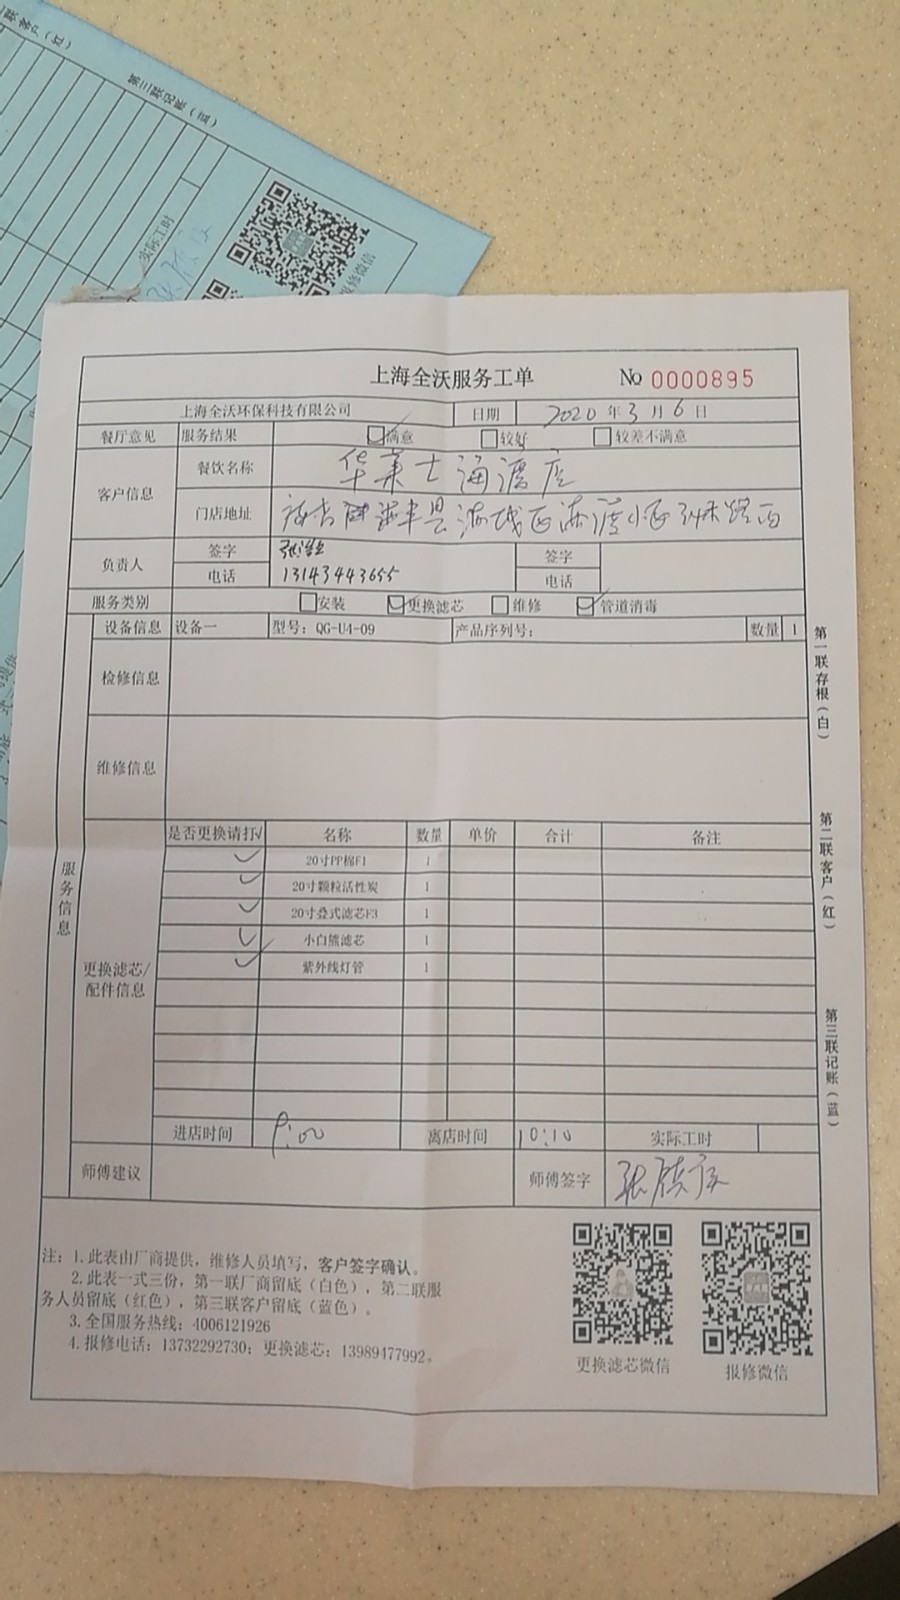 第三联记账（蓝）
实际工时
报修微信
上海全沃服务工单 No 0000895
上海全沃环保科技有限公司 日期 2020 年 3 月 6 日
餐厅意见 服务结果 满意 较好 较差不满意
客户信息 餐饮名称 华莱士海渡店
门店地址
负责人 签字 签字
电话 13143443655 电话
服务类别 安装 更换滤芯 维修 管道消毒
服务信息
设备信息 设备一 型号：QG-U4-09 产品序列号： 数量 1
检修信息
维修信息
更换滤芯/配件信息
是否更换请打√ 名称 数量 单价 合计 备注
✓ 20寸PP棉F1 1
✓ 20寸颗粒活性炭 1
✓ 20寸叠式滤芯F3 1
✓ 小白熊滤芯 1
✓ 紫外线灯管 1
进店时间 9:00 离店时间 10:10 实际工时
师傅建议 师傅签字
第一联存根（白）
第二联客户（红）
第三联记账（蓝）
注：1.此表由厂商提供，维修人员填写，客户签字确认。
2.此表一式三份，第一联厂商留底（白色），第二联服
务人员留底（红色），第三联客户留底（蓝色）。
3.全国服务热线：4006121926
4.报修电话：13732292730；更换滤芯：13989477992。
更换滤芯微信 报修微信